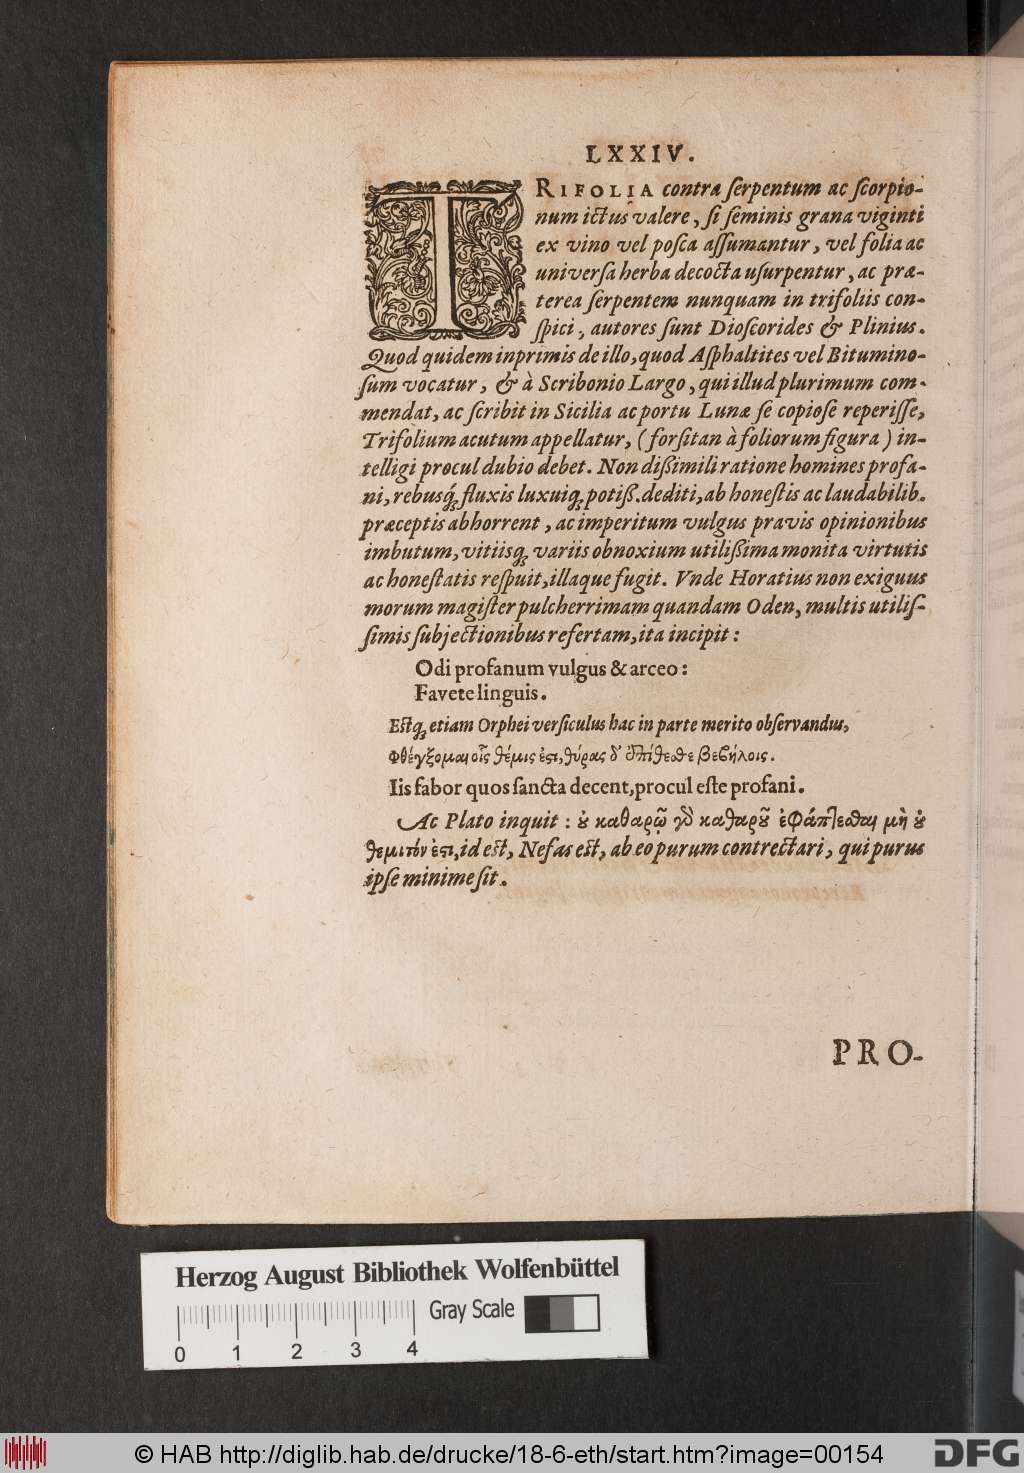 LXXIV.
TRIFOLIA contra ſerpentum ac ſcorpio-
num ictus valere, ſi ſeminis grana viginti
ex vino vel poſca aſſumantur, vel folia ac
univerſa herba decocta uſurpentur, ac præ-
terea ſerpentem nunquam in trifoliis con-
ſpici, autores ſunt Dioſcorides & Plinius.
Quod quidem inprimis de illo, quod Aſphaltites vel Bitumino-
ſum vocatur, & à Scribonio Largo, qui illud plurimum com-
mendat, ac ſcribit in Sicilia ac portu Lunæ ſe copioſe reperiſſe,
Trifolium acutum appellatur, (forſitan à foliorum figura) in-
telligi procul dubio debet. Non dißimili ratione homines profa-
ni, rebusq́ꝫ fluxis luxuiqꝫ potiß. dediti, ab honeſtis ac laudabilib.
præceptis abhorrent, ac imperitum vulgus pravis opinionibus
imbutum, vitiisqꝫ variis obnoxium utilißima monita virtutis
ac honeſtatis reſpuit, illaque fugit. Vnde Horatius non exiguus
morum magiſter pulcherrimam quandam Oden, multis utiliſ-
ſimis ſubjectionibus refertam, ita incipit:
Odi profanum vulgus & arceo:
Favete linguis.
Eſtqꝫ etiam Orphei verſiculus hac in parte merito obſervandus,
Φθέγξομαι οἷς θέμις ἐϛι, θύρας δ' ἐπίθεσθε βεβήλοις.
Iis fabor quos ſancta decent, procul eſte profani.
Ac Plato inquit: ȣ̓ καθαρῷ γὸ καθαρȣ͂ ἐφάπτεσθαι μὴ ȣ̓
θεμιτόν ἐϛι, id eſt, Nefas eſt, ab eo purum contrectari, qui purus
ipſe minime ſit.
PRO-
Herzog August Bibliothek Wolfenbüttel
Gray Scale
0 1 2 3 4
© HAB http://diglib.hab.de/drucke/18-6-eth/start.htm?image=00154
DFG